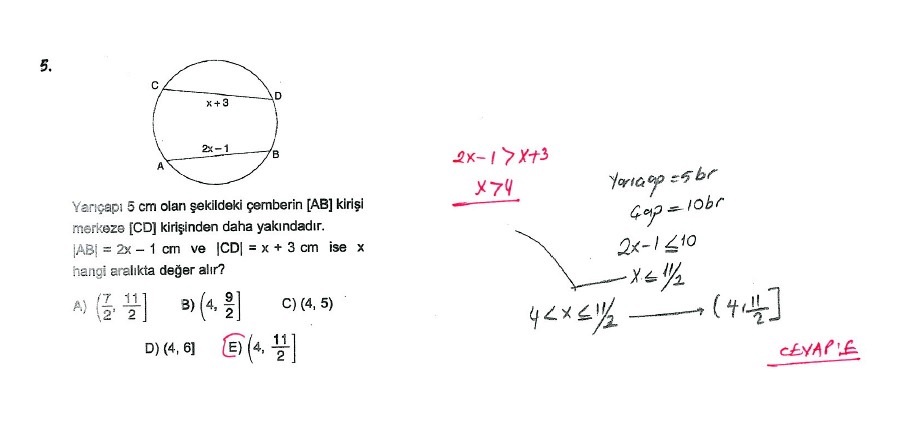 5.
C
D
x+3
2x-1
A
B
Yarıçapı 5 cm olan şekildeki çemberin [AB] kirişi
merkeze [CD] kirişinden daha yakındadır.
|AB| = 2x – 1 cm ve |CD| = x + 3 cm ise x
hangi aralıkta değer alır?
A) (7/2, 11/2] B) (4, 9/2] C) (4, 5)
D) (4, 6] E) (4, 11/2]
2x-1>x+3
x>4
Yarıçap=5br
Çap=10br
2x-1≤10
x≤11/2
4<x≤11/2 → (4,11/2]
CEVAP:E